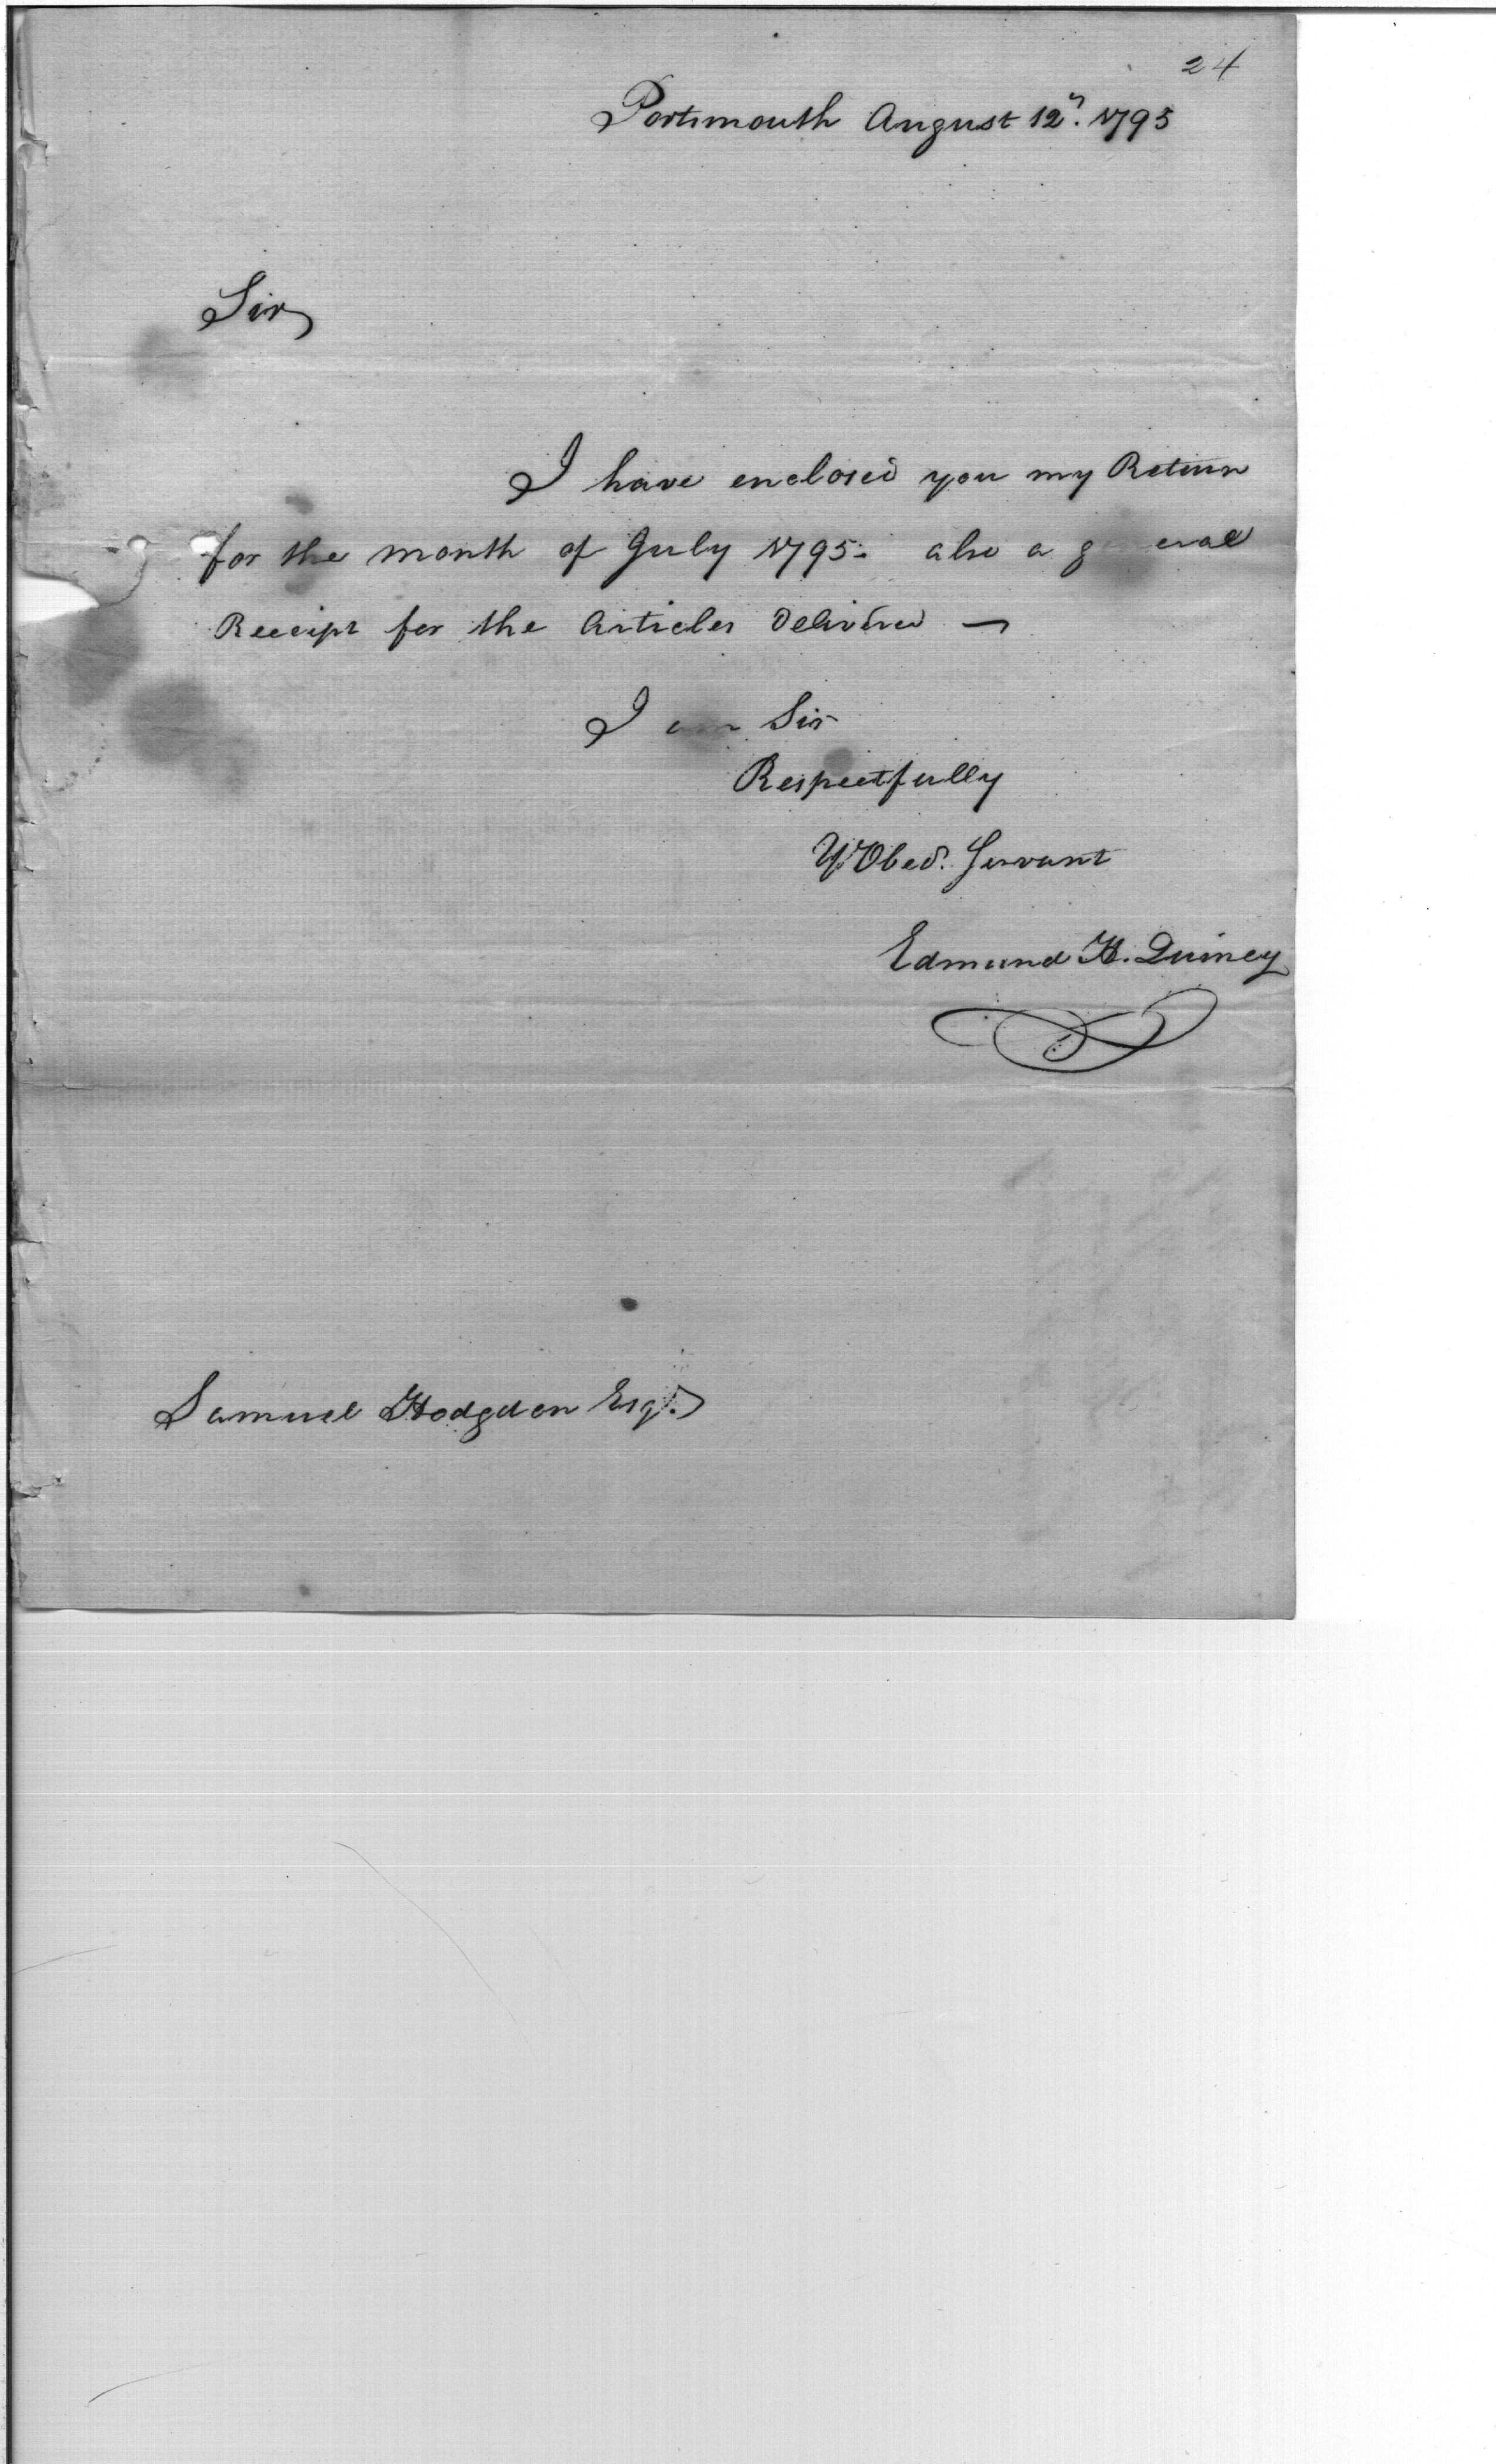 24
Portsmouth August 12th. 1795
Sir
I have enclosed you my Return
for the month of July 1795. also a general
Receipt for the Articles Delivered —
I am Sir
Respectfully
Yr Obed. Servant
Edmund H. Quincy
Samuel Hodgdon Esqr.